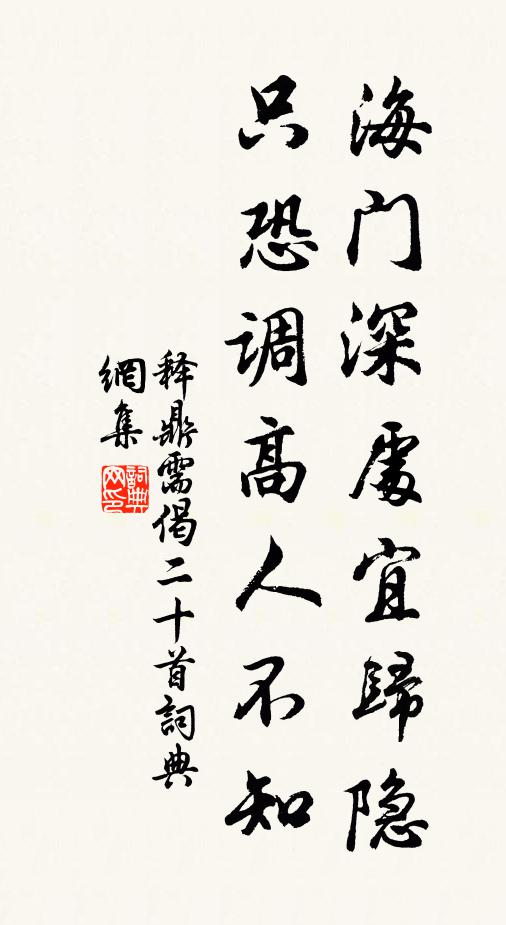 海门深處宜歸隐
只恐调高人不知
释鼎需偈二十首詞典
網集
詞典网印